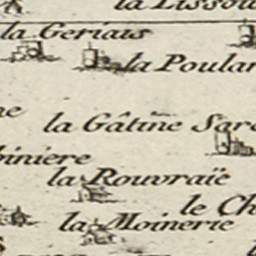 la Lissou
la Geriais
la Poular
la Gâtine Sar
biniere
la Rouvraïe
le Ch
la Moinerie